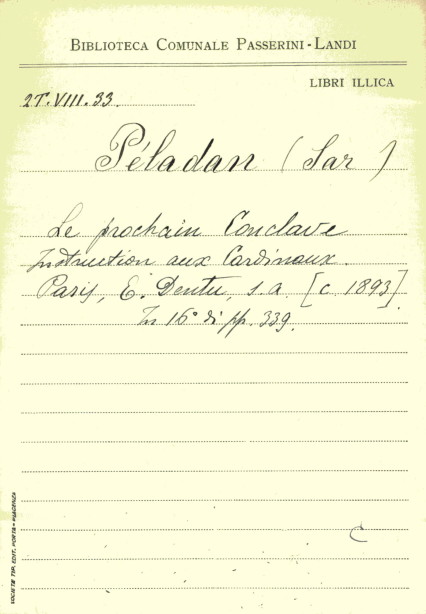 BIBLIOTECA COMUNALE PASSERINI-LANDI
LIBRI ILLICA
2T.VIII.33.
Péladan (Sar)
Le prochain Conclave
Instruction aux Cardinaux.
Paris, E. Dentu, s.a. [c 1893]
In 16° di pp. 339.
C
SOCIETÀ TIP. EDIT. PORTA - PIACENZA